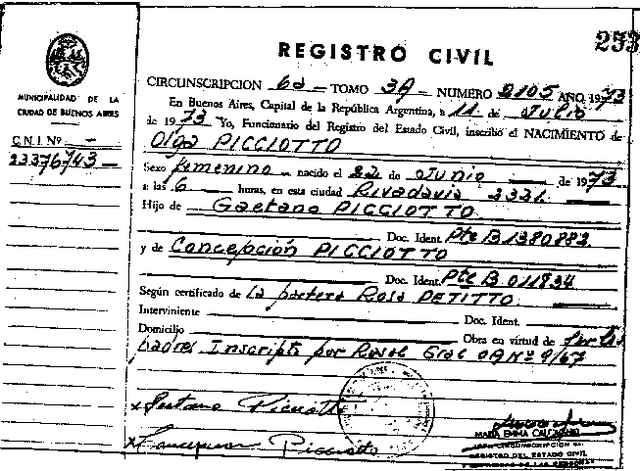 253
REGISTRO CIVIL
MUNICIPALIDAD DE LA
CIUDAD DE BUENOS AIRES
C.N.I. Nº
23376743
CIRCUNSCRIPCION 6a TOMO 3A NUMERO 2105 AÑO 1973
En Buenos Aires, Capital de la República Argentina, a 11 de Julio
de 1973 Yo, Funcionario del Registro del Estado Civil, inscribo el NACIMIENTO de
Olga PICCIOTTO
Sexo femenino nacido el 22 de Junio de 1973
a las 6 horas, en esta ciudad Rivadavia 2331
Hijo de Gaetano PICCIOTTO
Doc. Ident. Pte B 1380882
y de Concepción PICCIOTTO
Doc. Ident. Pte B 011934
Según certificado de La partera Rosa PETITTO
Interviniente Doc. Ident.
Domicilio Obra en virtud de
padres Inscripto por Resol Gral Nº 9/67
Picciotto
Picciotto
MARIA EMMA
CIRCUNSCRIPCION
REGISTRO DEL ESTADO CIVIL